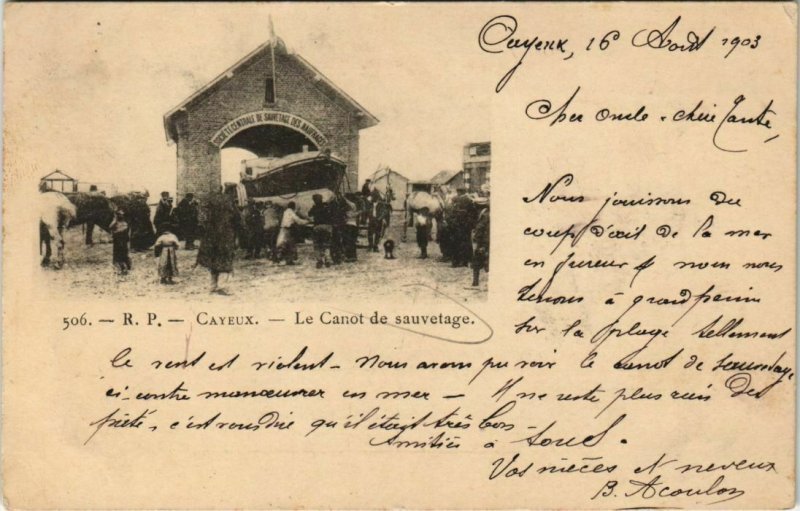 Cayeux, 16 Août 1903
Cher Oncle - chère Tante,
SOCIÉTÉ CENTRALE DE SAUVETAGE DES NAUFRAGÉS
Nous jouissons du
coup d'œil de la mer
en fureur et nous nous
tenons à grand peine
sur la plage tellement
506. — R. P. — CAYEUX. — Le Canot de sauvetage.
le vent est violent - Nous avons pu voir le canot de sauvetage
ci-contre manœuvrer en mer - Il ne reste plus rien des
c'est vous dire qu'il était très bon -
Amitiés à tous.
Vos nièces et neveux
B. Acoulon